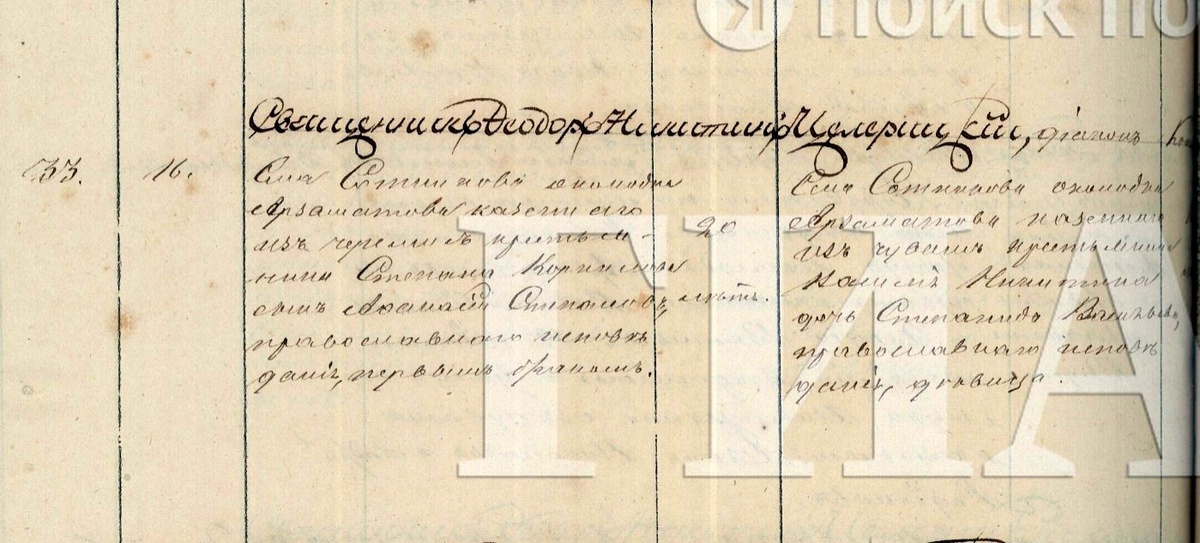 Я ПОИСК ПО
Священникъ Ѳеодоръ Никитинъ Целерицкій, діаконъ
33. 16. Села Сотникова околодка
Арзаматова казеннаго
изъ черемисъ крестья-
нина Степана Корнилова
сынъ Аѳанасій Степановъ,
православнаго исповѣ
данія, первымъ бракомъ.
20
лѣтъ.
Села Сотникова околодка
Арзаматова казеннаго
изъ чувашъ крестьянина
Никитина
дочь Степанида
православнаго исповѣ
данія, дѣвица.
ГИА